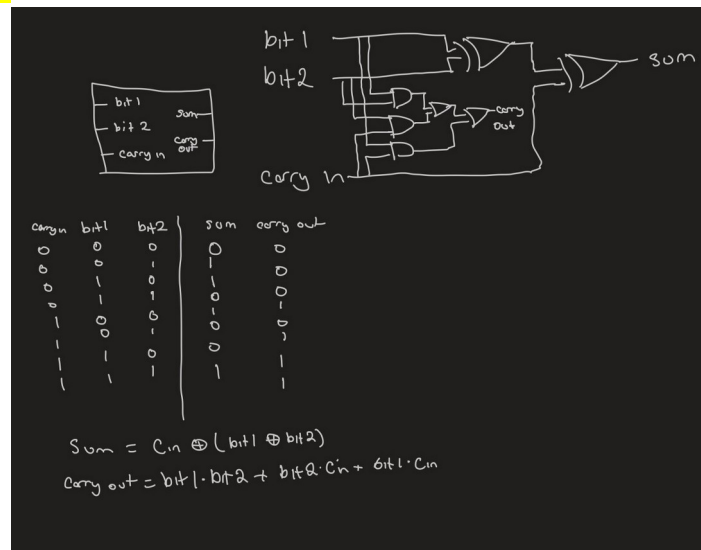 bit 1
bit 2
carry in
sum
carry out
bit 1
bit 2
carry in
sum
carry out
carry in bit1 bit2 sum carry out
0 0 0 0 0
0 0 1 1 0
0 1 0 1 0
0 1 1 0 1
1 0 0 1 0
1 0 1 0 1
1 1 0 0 1
1 1 1 1 1
Sum = Cin ⊕ (bit1 ⊕ bit2)
Carry out = bit1·bit2 + bit2·Cin + bit1·Cin